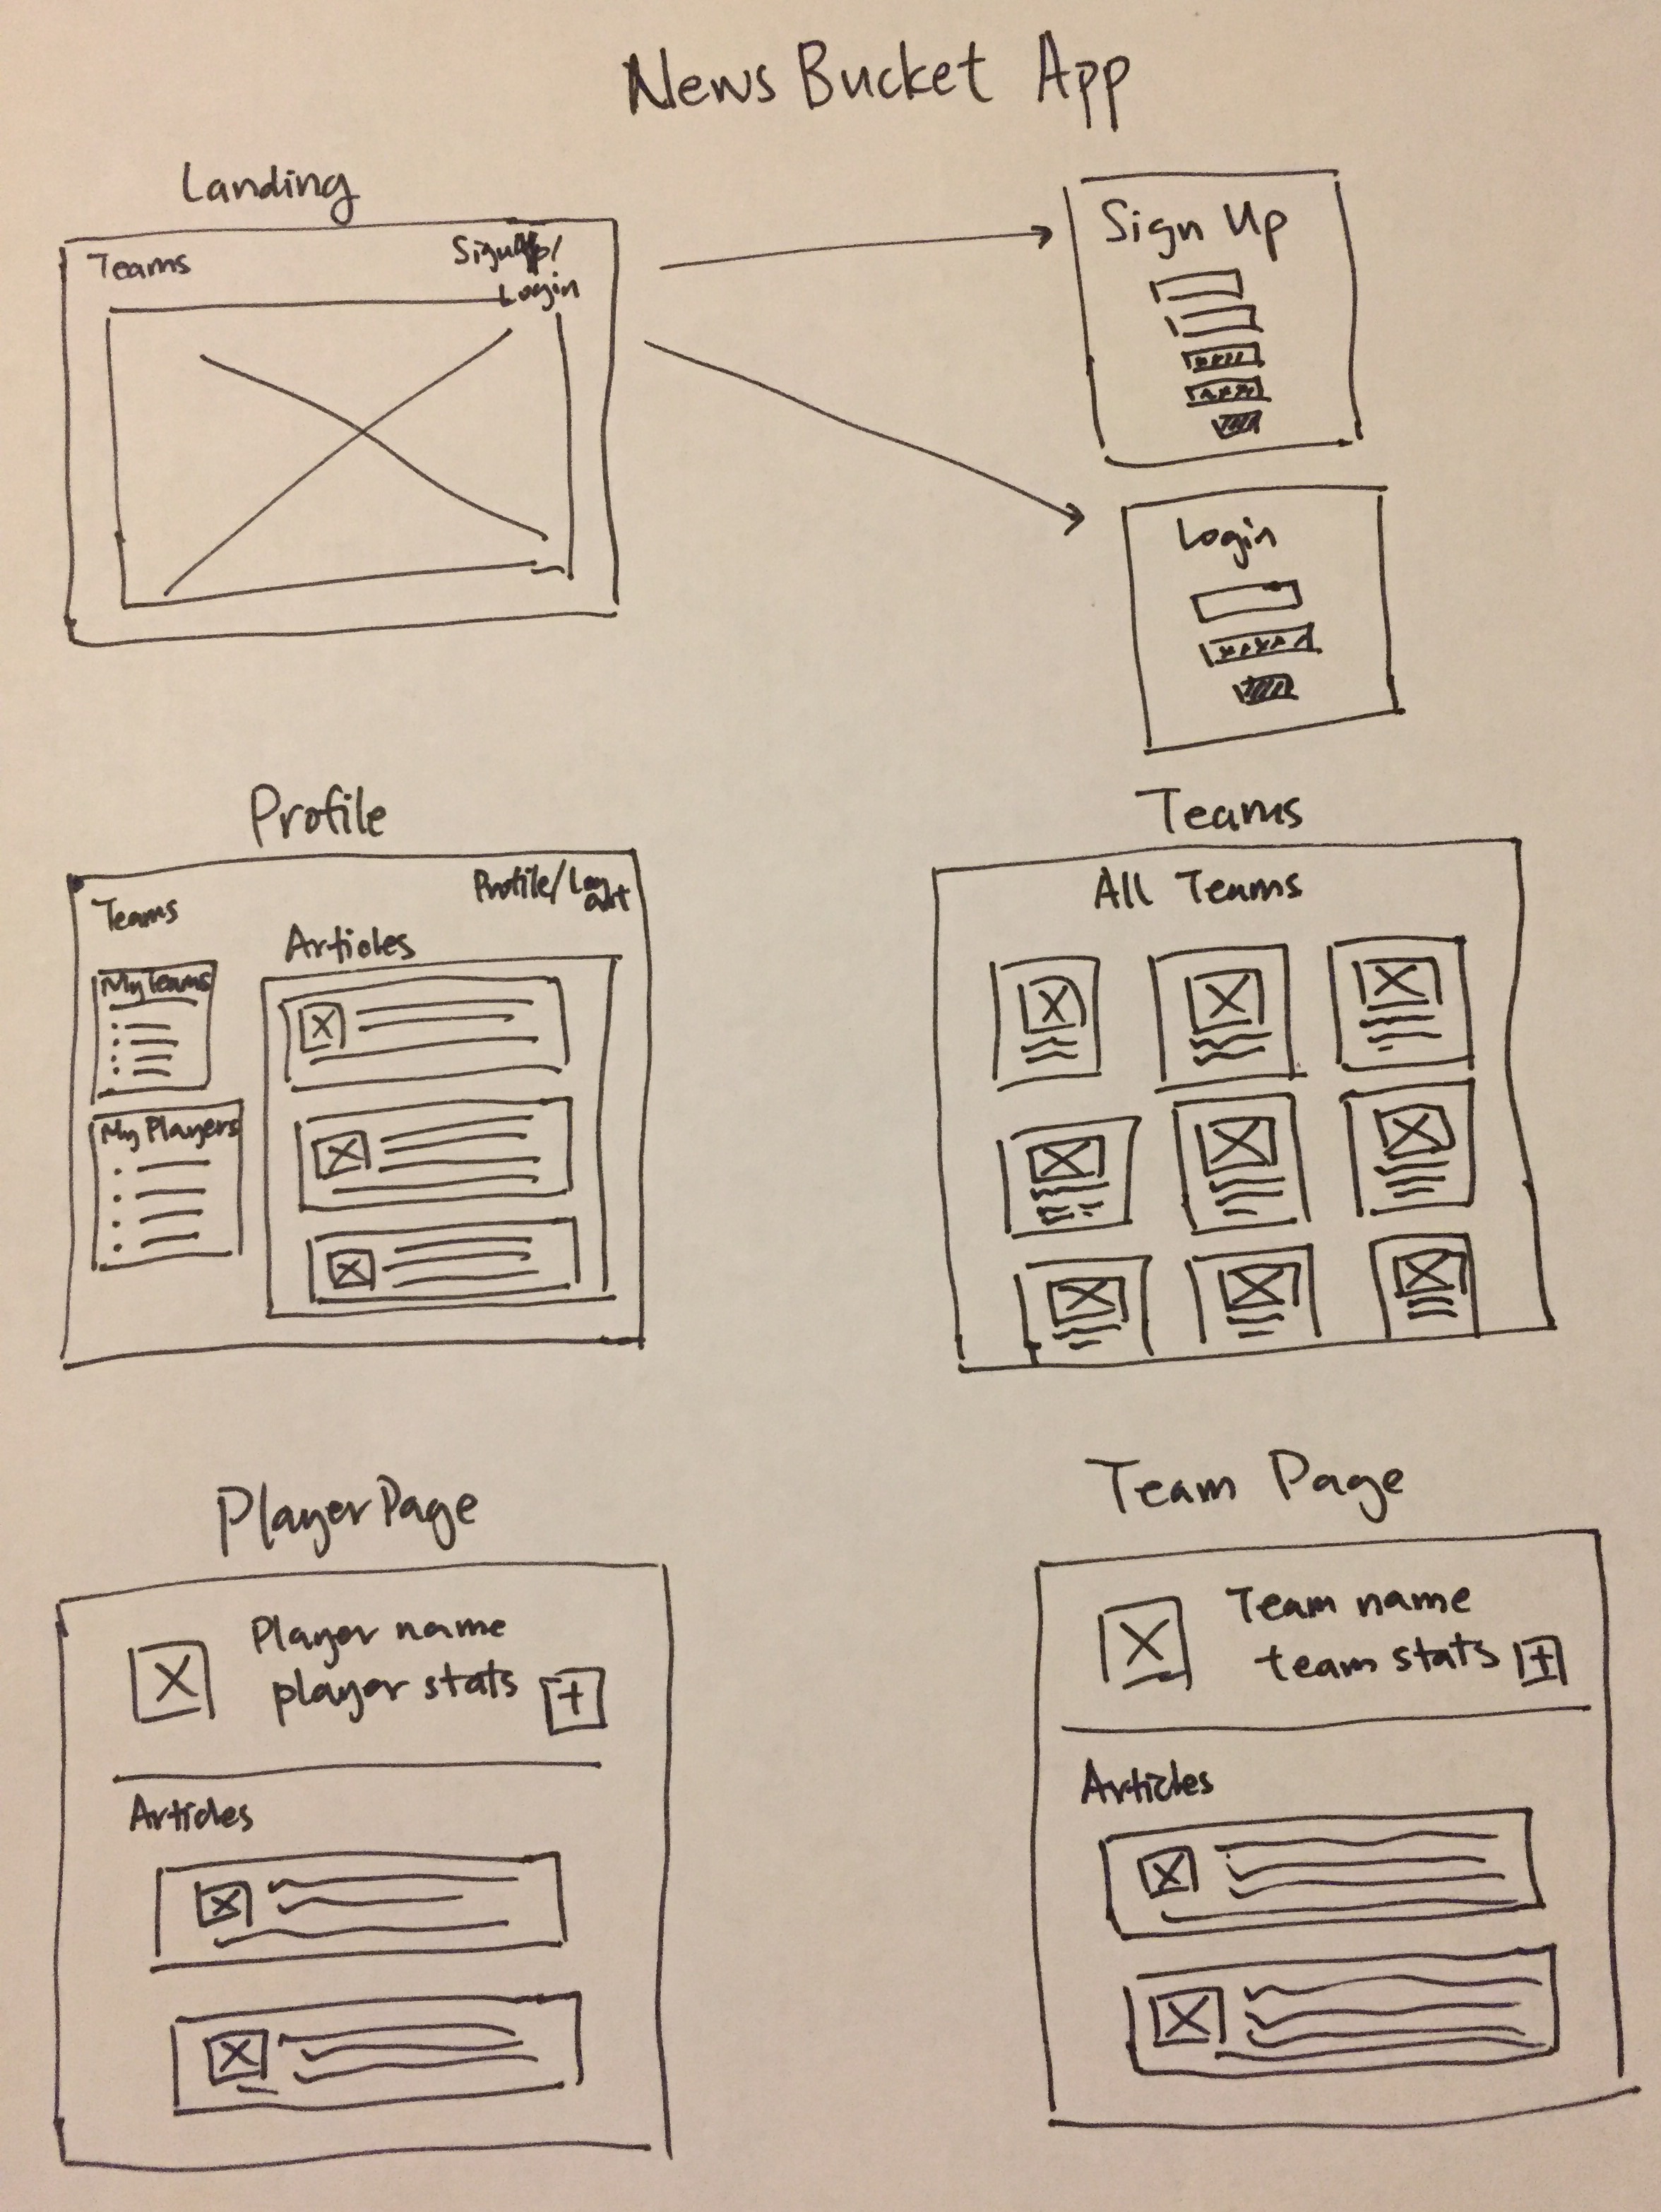 News Bucket App
Landing
Teams
SignUp/
Login
Sign Up
xxxx
xxxx
Login
xxxxx
Profile
Teams
Profile/Log
out
My Teams
Articles
My Players
Teams
All Teams
Player Page
Player name
player stats +
Articles
Team Page
Team name
team stats +
Articles